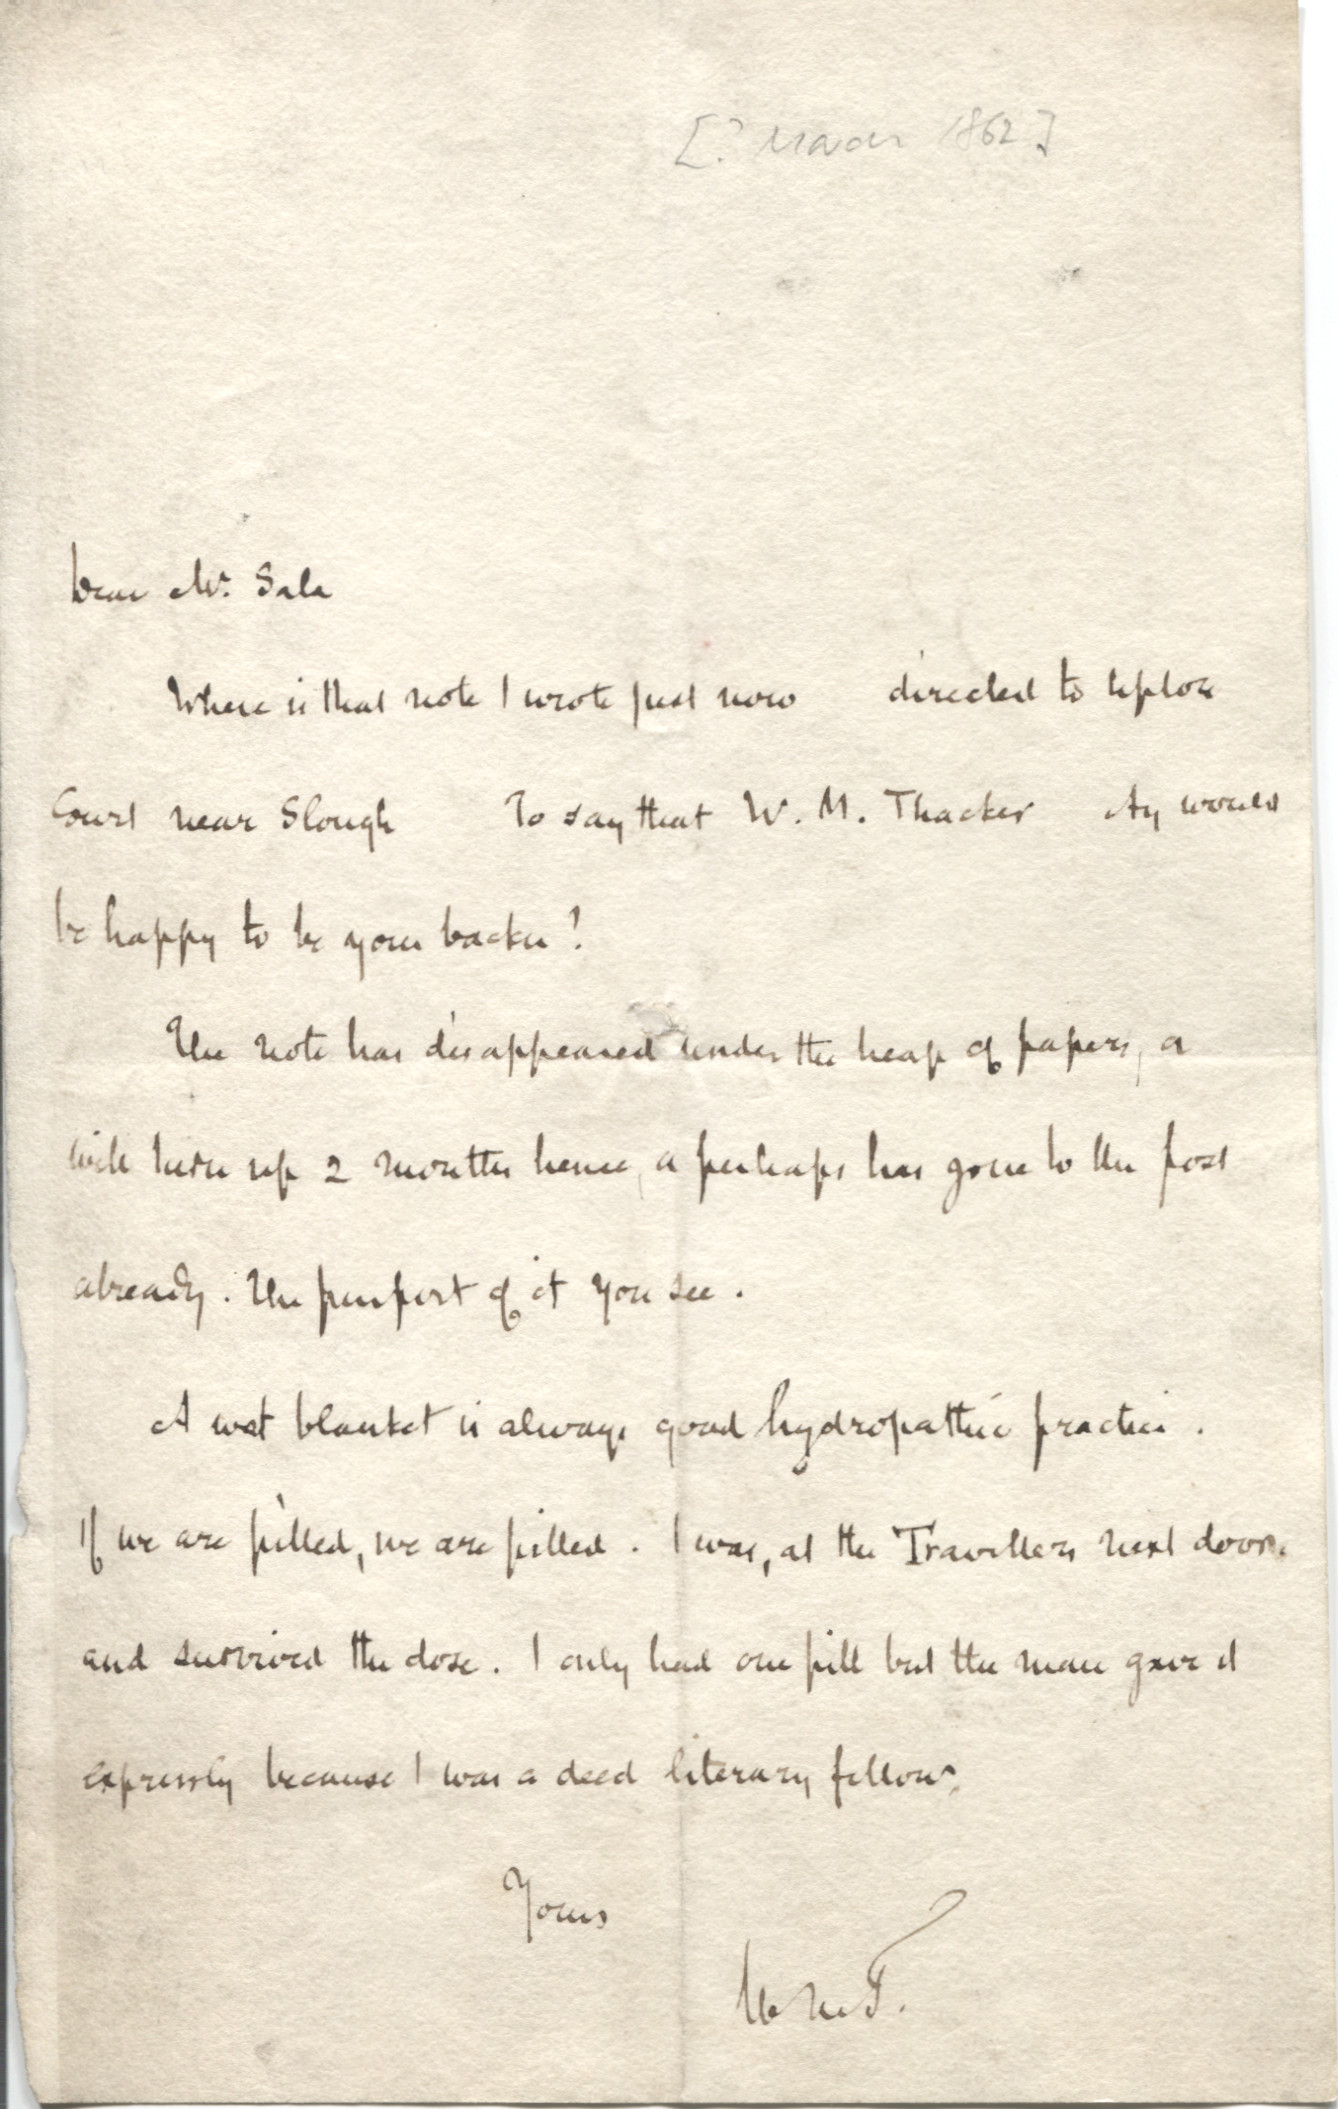 [? March 1862]
Dear Mr. Sala
Where is that note I wrote just now directed to Upton
Court near Slough To say that W. M. Thacker Ay would
be happy to be your backer?
The note has disappeared under the heap of papers, or
will turn up 2 months hence, or perhaps has gone to the post
already. The purport of it you see.
A wet blanket is always good hydropathic practice.
If we are pilled, we are pilled. I was, at the Travellers next door.
and survived the dose. I only had one pill but the man gave it
expressly because I was a deed literary fellow.
Yours
WMT.